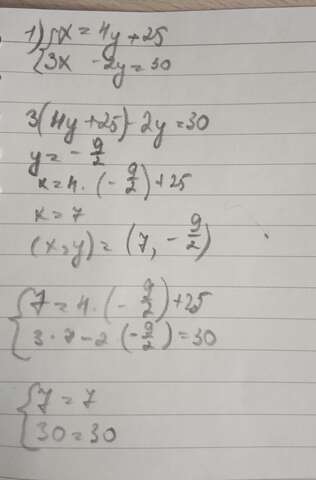 1) { x = 4y + 25
{ 3x - 2y = 30
3(4y + 25) - 2y = 30
y = - 9/2
x = 4 · (- 9/2) + 25
x = 7
(x, y) = (7, - 9/2)
{ 7 = 4 · (- 9/2) + 25
{ 3 · 7 - 2 · (- 9/2) = 30
{ 7 = 7
{ 30 = 30